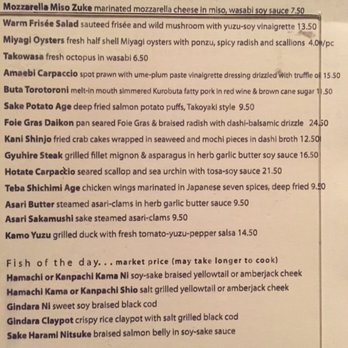 Mozzarella Miso Zuke marinated mozzarella cheese in miso, wasabi soy sauce 7.50
Warm Frisée Salad sauteed frisée and wild mushroom with yuzu-soy vinaigrette 13.50
Miyagi Oysters fresh half shell Miyagi oysters with ponzu, spicy radish and scallions 4.00/pc
Takowasa fresh octopus in wasabi 6.50
Amaebi Carpaccio spot prawn with ume-plum paste vinaigrette dressing drizzled with truffle oil 15.50
Buta Torotoroni melt-in mouth simmered Kurobuta fatty pork in red wine & brown cane sugar 11.50
Sake Potato Age deep fried salmon potato puffs, Takoyaki style 9.50
Foie Gras Daikon pan seared Foie Gras & braised radish with dashi-balsamic drizzle 24.50
Kani Shinjo fried crab cakes wrapped in seaweed and mochi pieces in dashi broth 12.50
Gyuhire Steak grilled fillet mignon & asparagus in herb garlic butter soy sauce 16.50
Hotate Carpaccio seared scallop and sea urchin with tosa-soy sauce 21.50
Teba Shichimi Age chicken wings marinated in Japanese seven spices, deep fried 9.50
Asari Butter steamed asari-clams in herb garlic butter sauce 9.50
Asari Sakamushi sake steamed asari-clams 9.50
Kamo Yuzu grilled duck with fresh tomato-yuzu-pepper salsa 14.50
Fish of the day... market price (may take longer to cook)
Hamachi or Kanpachi Kama Ni soy-sake braised yellowtail or amberjack cheek
Hamachi Kama or Kanpachi Shio salt grilled yellowtail or amberjack cheek
Gindara Ni sweet soy braised black cod
Gindara Claypot crispy rice claypot with salt grilled black cod
Sake Harami Nitsuke braised salmon belly in soy-sake sauce